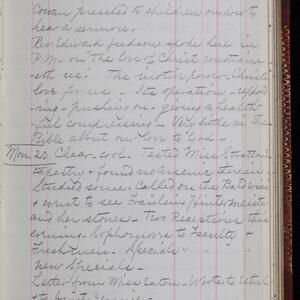 Cowan preached to children on how to
hear a sermon.
Rev. Edward Judson spoke here in
P.M. on "The love of Christ constrain-
eth us." The motive power Christ's
love for us - Its operation -
ring - pushing on - giving a health-
ful compressing - Very little in the
Bible about our love to God -
Mon. 20 Clear - cool. Tested Miss Stratton's
tapestry & found no arsenic therein -
Studied some. Called on the Baldwins
& went to see Fraulein Hintermeister
and her stones - Two Receptions this
evening. Sophomores to Faculty &
Freshmen. Specials " " "
New Specials -
Letter from Miss Eaton - Wrote to Ethel